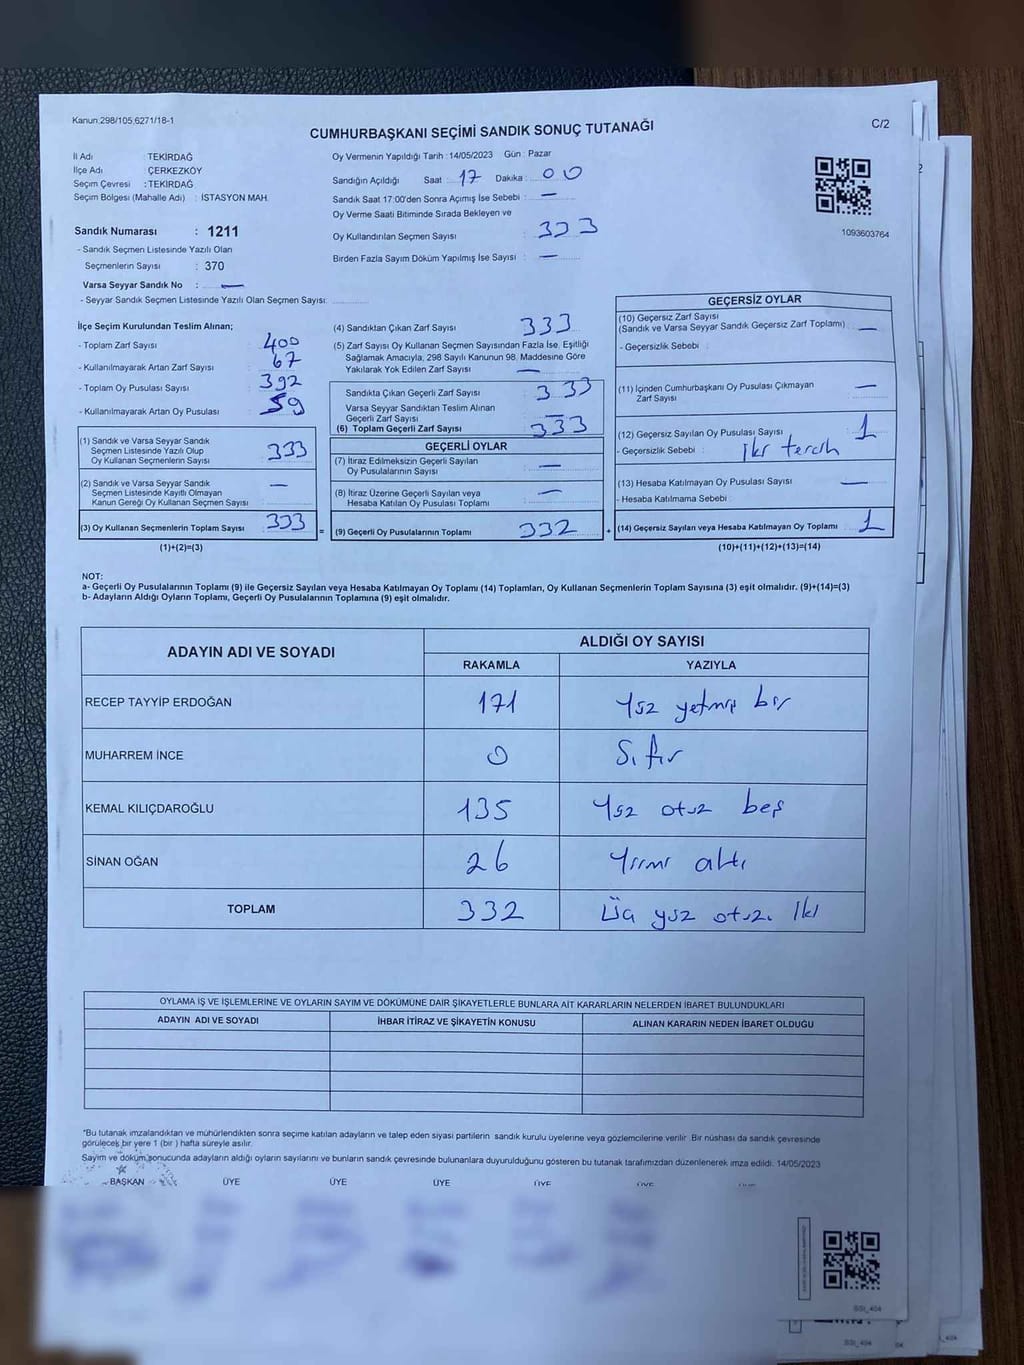 Kanun.298/105,6271/18-1
CUMHURBAŞKANI SEÇİMİ SANDIK SONUÇ TUTANAĞI
C/2
İl Adı TEKİRDAĞ
İlçe Adı : ÇERKEZKÖY
Seçim Çevresi : TEKİRDAĞ
Seçim Bölgesi (Mahalle Adı) : İSTASYON MAH.
Sandık Numarası : 1211
- Sandık Seçmen Listesinde Yazılı Olan
Seçmenlerin Sayısı : 370
Varsa Seyyar Sandık No : —
- Seyyar Sandık Seçmen Listesinde Yazılı Olan Seçmen Sayısı:
Oy Vermenin Yapıldığı Tarih : 14/05/2023 Gün : Pazar
Sandığın Açıldığı Saat : 17 Dakika : 00
Sandık Saat 17:00'den Sonra Açımış İse Sebebi : —
Oy Verme Saati Bitiminde Sırada Bekleyen ve
Oy Kullandırılan Seçmen Sayısı : 333
Birden Fazla Sayım Döküm Yapılmış İse Sayısı : —
1093603764
İlçe Seçim Kurulundan Teslim Alınan;
- Toplam Zarf Sayısı 400
- Kullanılmayarak Artan Zarf Sayısı 67
- Toplam Oy Pusulası Sayısı 392
- Kullanılmayarak Artan Oy Pusulası 59
(1) Sandık ve Varsa Seyyar Sandık
Seçmen Listesinde Yazılı Olup
Oy Kullanan Seçmenlerin Sayısı 333
(2) Sandık ve Varsa Seyyar Sandık
Seçmen Listesinde Kayıtlı Olmayan
Kanun Gereği Oy Kullanan Seçmen Sayısı —
(3) Oy Kullanan Seçmenlerin Toplam Sayısı 333
(1)+(2)=(3)
(4) Sandıktan Çıkan Zarf Sayısı 333
(5) Zarf Sayısı Oy Kullanan Seçmen Sayısından Fazla İse, Eşitliği
Sağlamak Amacıyla, 298 Sayılı Kanunun 98. Maddesine Göre
Yakılarak Yok Edilen Zarf Sayısı —
Sandıkta Çıkan Geçerli Zarf Sayısı 333
Varsa Seyyar Sandıktan Teslim Alınan
Geçerli Zarf Sayısı —
(6) Toplam Geçerli Zarf Sayısı 333
GEÇERLİ OYLAR
(7) İtiraz Edilmeksizin Geçerli Sayılan
Oy Pusulalarının Sayısı —
(8) İtiraz Üzerine Geçerli Sayılan veya
Hesaba Katılan Oy Pusulaları Toplamı —
= (9) Geçerli Oy Pusulalarının Toplamı 332 +
GEÇERSİZ OYLAR
(10) Geçersiz Zarf Sayısı
(Sandık ve Varsa Seyyar Sandık Geçersiz Zarf Toplamı) —
- Geçersizlik Sebebi :
(11) İçinden Cumhurbaşkanı Oy Pusulası Çıkmayan
Zarf Sayısı —
(12) Geçersiz Sayılan Oy Pusulası Sayısı 1
- Geçersizlik Sebebi : iki tercih
(13) Hesaba Katılmayan Oy Pusulası Sayısı —
- Hesaba Katılmama Sebebi :
(14) Geçersiz Sayılan veya Hesaba Katılmayan Oy Toplamı 1
(10)+(11)+(12)+(13)=(14)
NOT:
a- Geçerli Oy Pusulalarının Toplamı (9) ile Geçersiz Sayılan veya Hesaba Katılmayan Oy Toplamı (14) Toplamları, Oy Kullanan Seçmenlerin Toplam Sayısına (3) eşit olmalıdır. (9)+(14)=(3)
b- Adayların Aldığı Oyların Toplamı, Geçerli Oy Pusulalarının Toplamına (9) eşit olmalıdır.
ADAYIN ADI VE SOYADI ALDIĞI OY SAYISI
RAKAMLA YAZIYLA
RECEP TAYYİP ERDOĞAN 171 Yüz yetmiş bir
MUHARREM İNCE 0 Sıfır
KEMAL KILIÇDAROĞLU 135 Yüz otuz beş
SİNAN OĞAN 26 Yirmi altı
TOPLAM 332 Üç yüz otuz iki
OYLAMA İŞ VE İŞLEMLERİNE VE OYLARIN SAYIM VE DÖKÜMÜNE DAİR ŞİKAYETLERLE BUNLARA AİT KARARLARIN NELERDEN İBARET BULUNDUKLARI
ADAYIN ADI VE SOYADI İHBAR İTİRAZ VE ŞİKAYETİN KONUSU ALINAN KARARIN NEDEN İBARET OLDUĞU
*Bu tutanak imzalandıktan ve mühürlendikten sonra seçime katılan adayların ve talep eden siyasi partilerin sandık kurulu üyelerine veya gözlemcilerine verilir. Bir nüshası da sandık çevresinde
görülecek bir yere 1 (bir ) hafta süreyle asılır.
Sayım ve döküm sonucunda adayların aldığı oyların sayılarını ve bunların sandık çevresinde bulunanlara duyurulduğunu gösteren bu tutanak tarafımızdan düzenlenerek imza edildi. 14/05/2023
BAŞKAN ÜYE ÜYE ÜYE ÜYE ÜYE